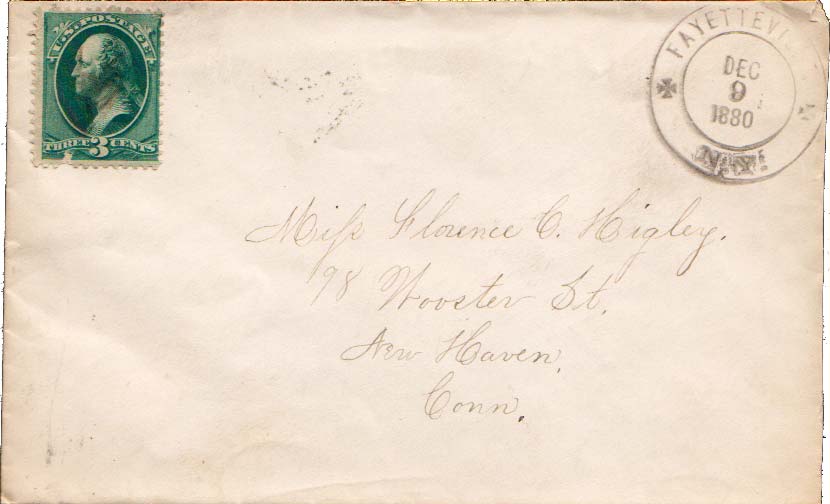 U.S. POSTAGE
THREE 3 CENTS
FAYETTEVI
DEC
9
1880
N.Y.
Miss Florence C. Higley.
98 Wooster St.
New Haven,
Conn.